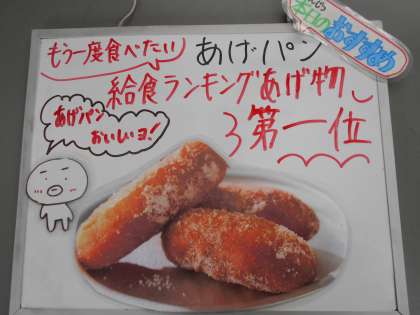 本日のおすすめ
もう一度食べたい あげパン
給食ランキングあげ物
第一位
あげパン
おいしいヨ!